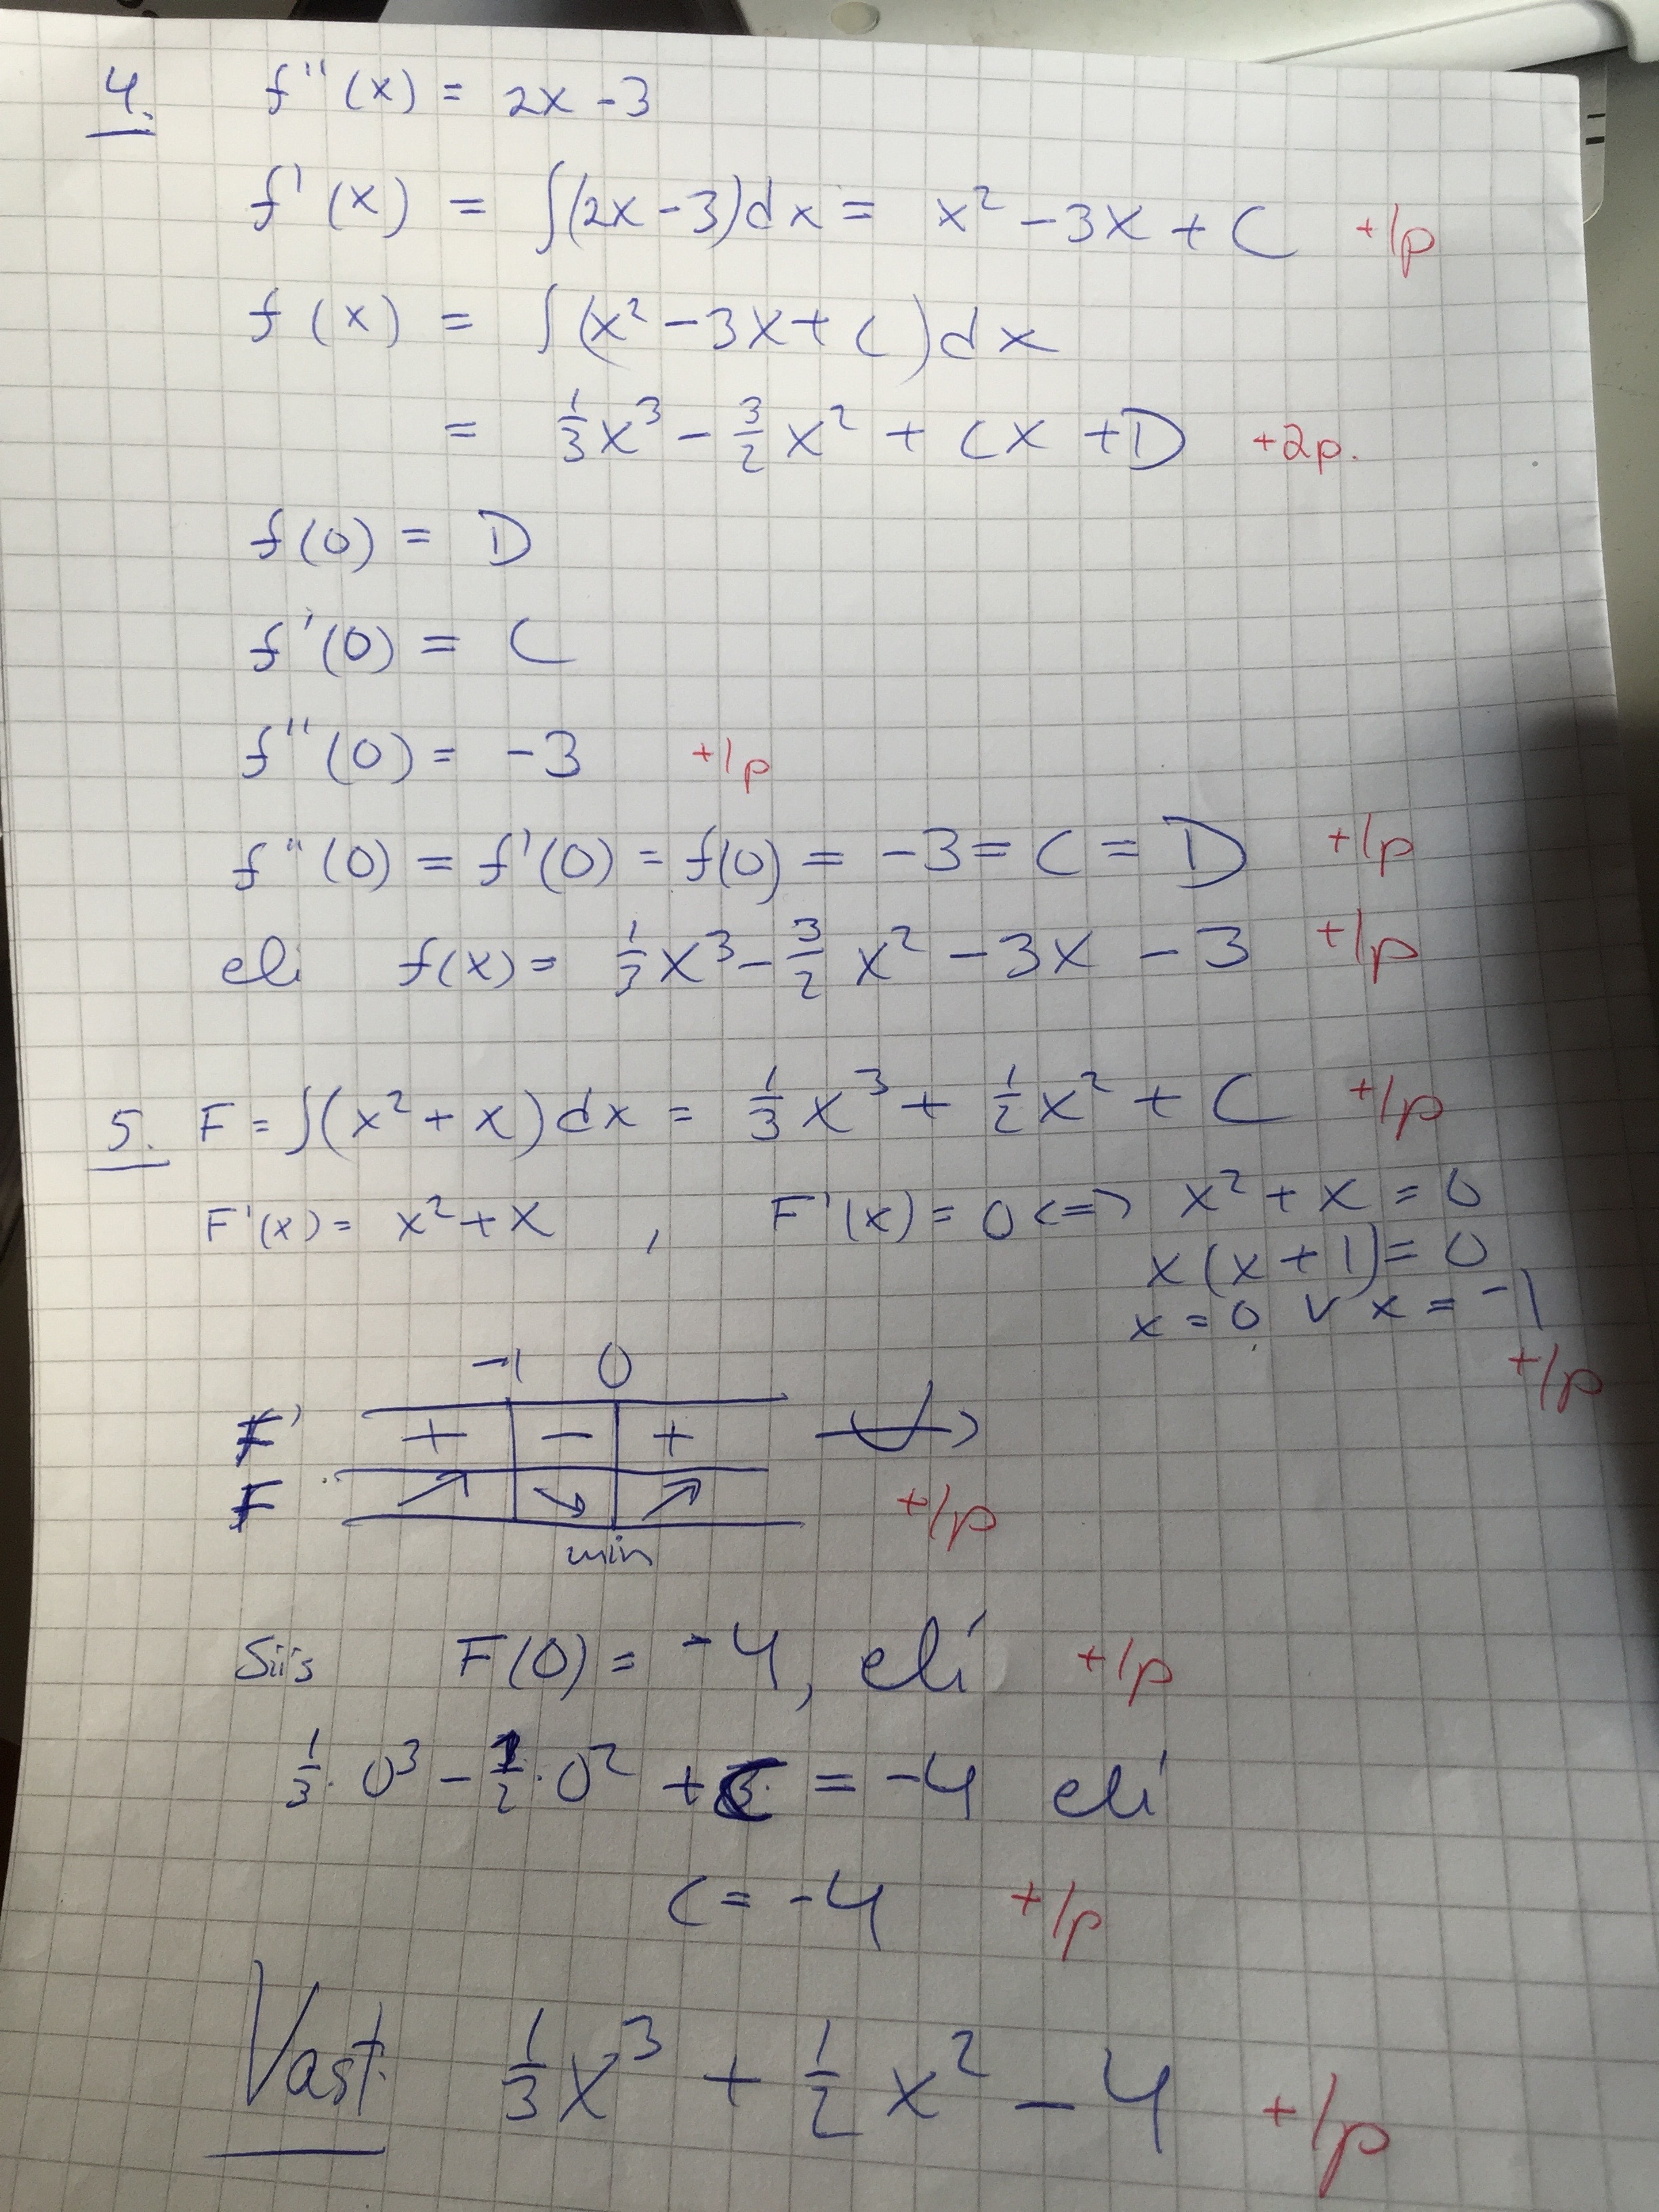 4. f''(x) = 2x - 3
f'(x) = ∫(2x - 3)dx = x² - 3x + C +1p
f(x) = ∫(x² - 3x + C)dx
= 1/3 x³ - 3/2 x² + Cx + D +2p.
f(0) = D
f'(0) = C
f''(0) = -3 +1p
f''(0) = f'(0) = f(0) = -3 = C = D +1p
eli f(x) = 1/3 x³ - 3/2 x² - 3x - 3 +1p
5. F = ∫(x² + x)dx = 1/3 x³ + 1/2 x² + C +1p
F'(x) = x² + x , F'(x) = 0 <=> x² + x = 0
x(x + 1) = 0
x = 0 ∨ x = -1
+1p
-1 0
F' + - +
F ↗ ↘ ↗ +1p
min
Siis F(0) = -4, eli +1p
1/3 · 0³ - 1/2 · 0² + C = -4 eli
C = -4 +1p
Vast. 1/3 x³ + 1/2 x² - 4 +1p